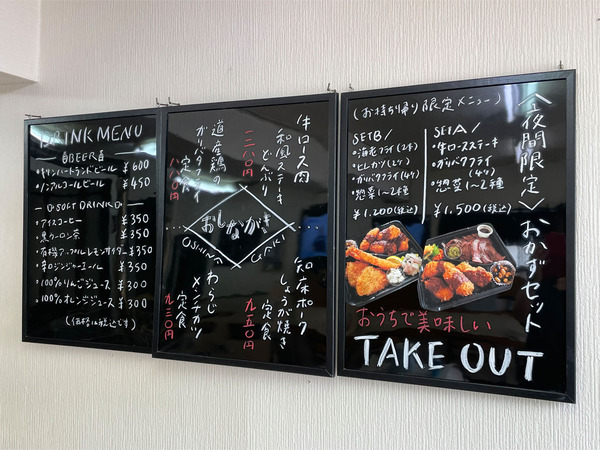 DRINK MENU
BEER
・キリンハートランドビール ¥600
・ノンアルコールビール ¥450
SOFT DRINK
・アイスコーヒー ¥350
・黒ウーロン茶 ¥350
・有機アップルレモンサイダー ¥350
・辛口ジンジャーエール ¥350
・100%りんごジュース ¥300
・100%オレンジジュース ¥300
(価格は税込です)
牛ロース肉
和風ステーキ
どんぶり
道産鶏の
ガリバタフライ
定食
八八〇円
おしながき
OSHINA GAKI
知床ポーク
しょうが焼き
定食
九五〇円
わらじ
メンチカツ
定食
九三〇円
〈夜間限定〉おかずセット
(お持ち帰り限定メニュー)
SET A
・牛ロースステーキ
・ガリバタフライ(4ケ)
・惣菜1〜2種
¥1,500(税込)
SET B
・海老フライ(2本)
・ヒレカツ(2ケ)
・ガリバタフライ(4ケ)
・惣菜1〜2種
¥1,200(税込)
おうちで美味しい
TAKE OUT